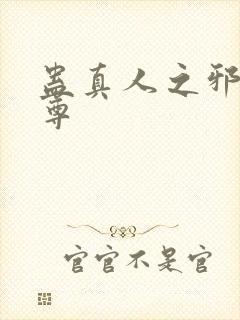 蛊真人之邪
尊
官官不是官